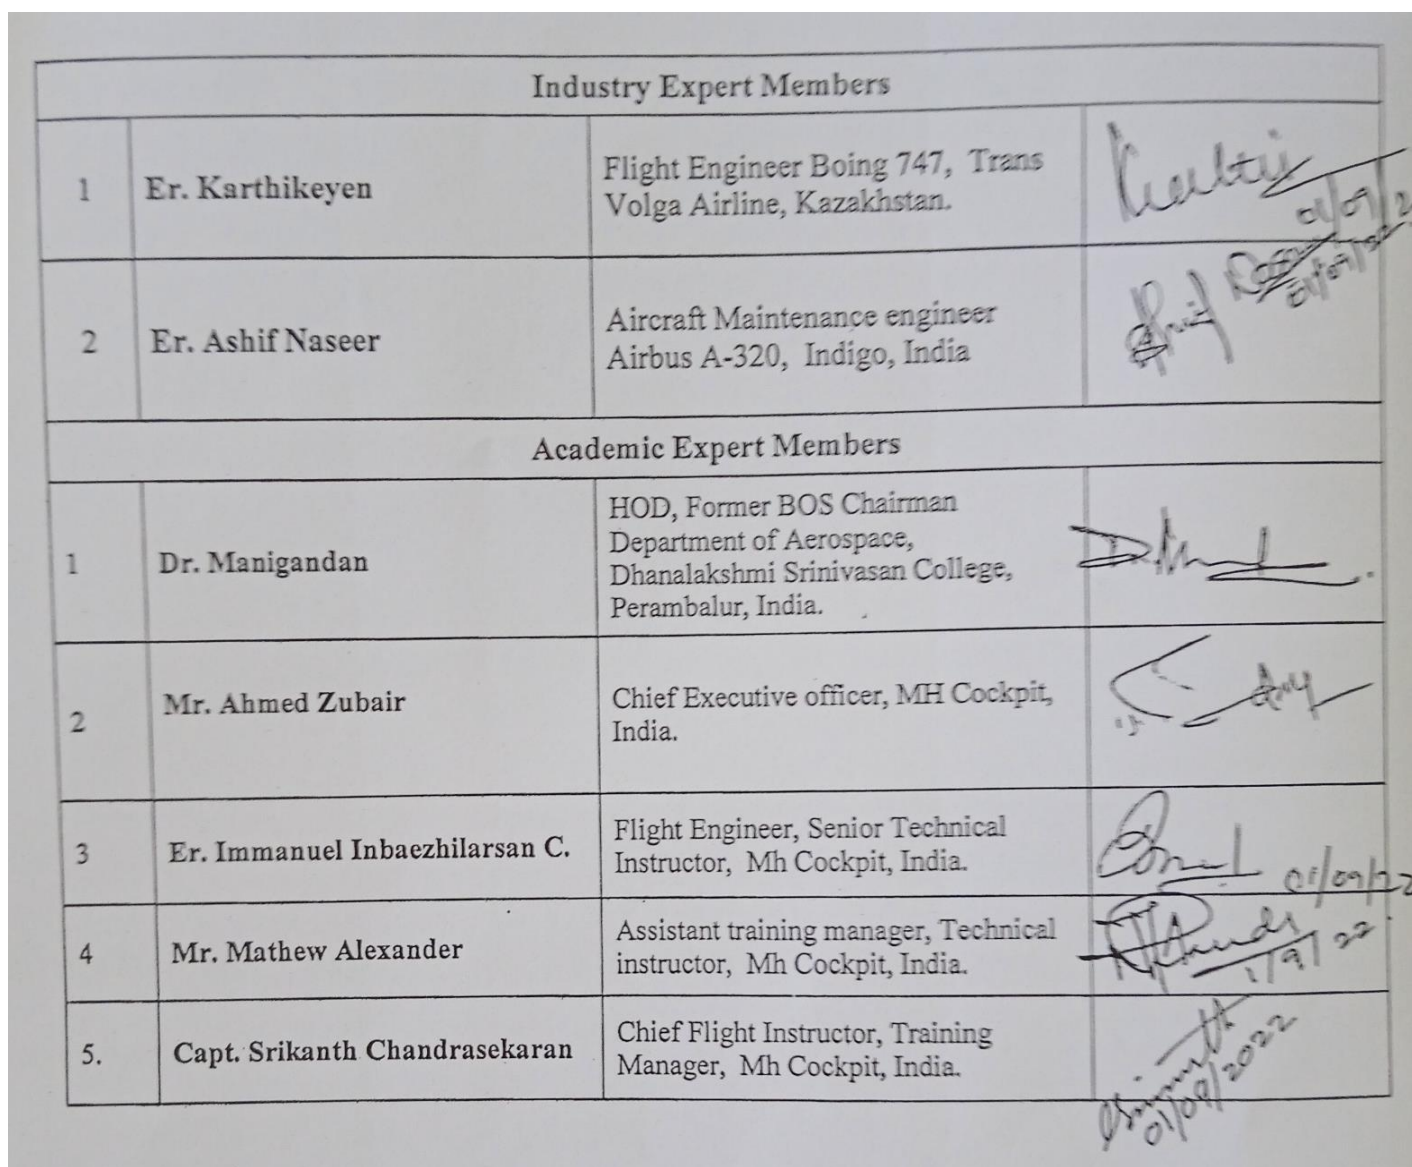 Industry Expert Members
1
Er. Karthikeyen
Flight Engineer Boing 747, Trans
Volga Airline, Kazakhstan.
01/09/2
2
Er. Ashif Naseer
Aircraft Maintenance engineer
Airbus A-320, Indigo, India
01/09/22
Academic Expert Members
1
Dr. Manigandan
HOD, Former BOS Chairman
Department of Aerospace,
Dhanalakshmi Srinivasan College,
Perambalur, India.
2
Mr. Ahmed Zubair
Chief Executive officer, MH Cockpit,
India.
3
Er. Immanuel Inbaezhilarsan C.
Flight Engineer, Senior Technical
Instructor, Mh Cockpit, India.
01/09/22
4
Mr. Mathew Alexander
Assistant training manager, Technical
instructor, Mh Cockpit, India.
1/9/22
5.
Capt. Srikanth Chandrasekaran
Chief Flight Instructor, Training
Manager, Mh Cockpit, India.
01/09/2022